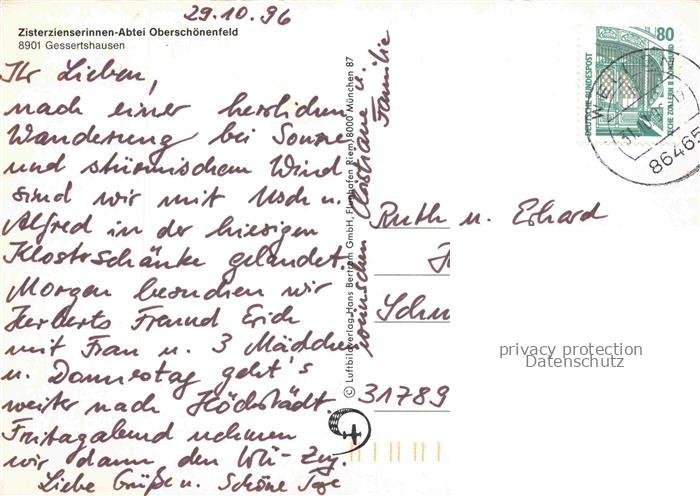 29.10.96
Zisterzienserinnen-Abtei Oberschönenfeld
8901 Gessertshausen
Ihr Lieben,
nach einer herrlichen
Wanderung bei Sonne
und stürmischem Wind
sind wir mit Usch u.
Alfred in der hiesigen
Klosterschänke gelandet.
Morgen besuchen wir
Herberts Freund Erich
mit Frau u. 3 Mädchen
u. Donnerstag geht's
weiter nach Höchstädt.
Freitagabend nehmen
wir dann den Wü-Zug.
Liebe Grüße u. Schöne Tage
wünschen Christiane u.
Familie
© Luftbildverlag Hans Bertram GmbH, Flughafen Riem, 8000 München 87
80
DEUTSCHE BUNDESPOST
ZECHE ZOLLERN II DORTMUND
86465
Ruth u. Erhard
Schu
31789
privacy protection
Datenschutz